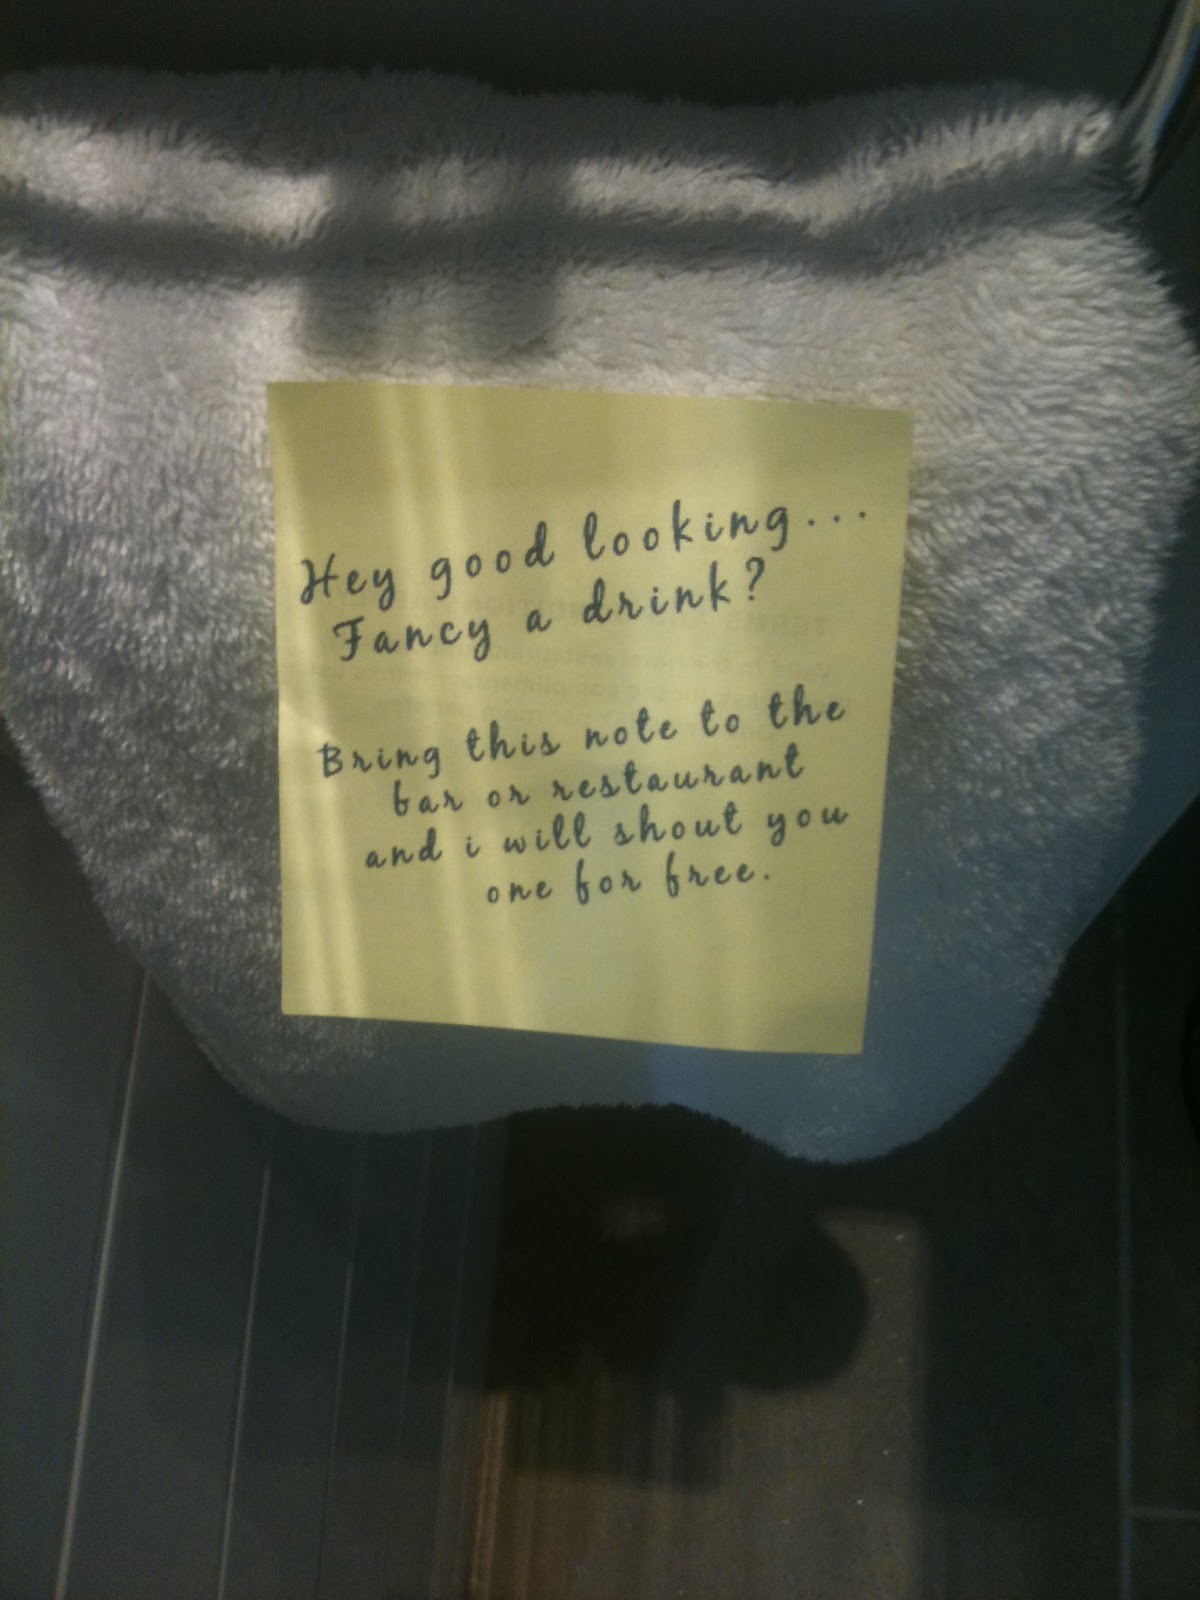 Hey good looking...
Fancy a drink?
Bring this note to the
bar or restaurant
and i will shout you
one for free.